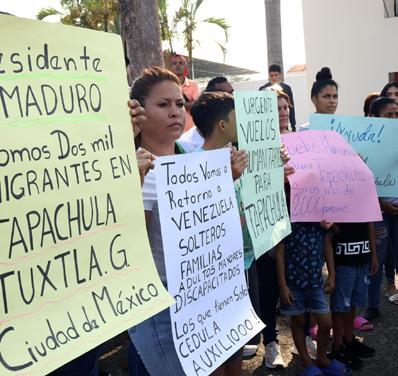 esidente
MADURO
Somos Dos mil
MIGRANTES EN
TAPACHULA
TUXTLA.G.
Ciudad de México
Todos Vamos a
Retorno a
VENEZUELA
SOLTEROS
FAMILIAS
ADULTOS MAYORES
DISCAPACITADOS
Los que tienen Solo
CEDULA
AUXILIOOOO
URGENTE
VUELOS
HUMANITARIOS
PARA
TAPACHULA
Vuelos Humani
para Tapachula
Somos más de
2000 personas
¡Ayuda!